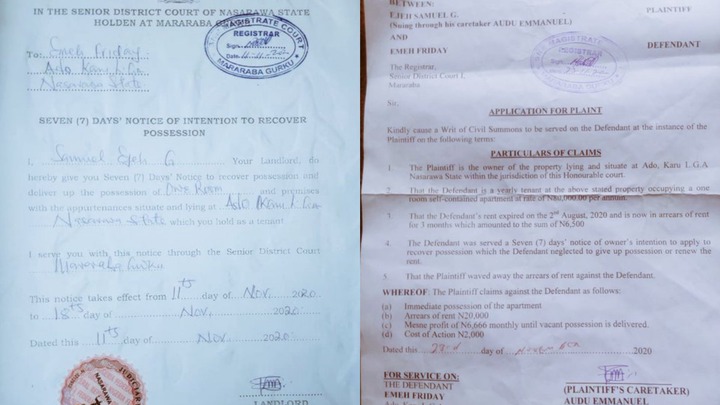 IN THE SENIOR DISTRICT COURT OF NASARAWA STATE
HOLDEN AT MARARABA GURKU
MAGISTRATE COURT
REGISTRAR
Sign.
Date. 11-11-2020
MARARABA GURKU
To: Emeh Friday
Ado Karu L.G.A
Nasarawa State
SEVEN (7) DAYS' NOTICE OF INTENTION TO RECOVER
POSSESSION
I, Samuel Ejeh G Your Landlord, do
hereby give you Seven (7) Days' Notice to recover possession and
deliver up the possession of One Room and premises
with the appurtenances situate and lying at Ado Karu L.G.A
Nasarawa State which you hold as a tenant.
I serve you with this notice through the Senior District Court
Mararaba Gurku
This notice takes effect from 11th day of Nov. 2020
to 18th day of Nov. 2020
Dated this 11th day of Nov. 2020
LANDLORD
BETWEEN:
EJEH SAMUEL G. PLAINTIFF
(Suing through his caretaker AUDU EMMANUEL)
AND
EMEH FRIDAY DEFENDANT
MAGISTRATE
REGISTRAR
The Registrar,
Senior District Court I,
Mararaba
Sir,
APPLICATION FOR PLAINT
Kindly cause a Writ of Civil Summons to be served on the Defendant at the instance of the
Plaintiff on the following terms:
PARTICULARS OF CLAIMS
1. The Plaintiff is the owner of the property lying and situate at Ado, Karu L.G.A
Nasarawa State within the jurisdiction of this Honourable court.
2. That the Defendant is a yearly tenant at the above stated property occupying a one
room self-contained apartment at rate of N80,000.00 per annum.
3 That the Defendant's rent expired on the 2nd August, 2020 and is now in arrears of rent
for 3 months which amounted to the sum of N6,500
4. The Defendant was served a Seven (7) days' notice of owner's intention to apply to
recover possession which the Defendant neglected to give up possession or renew the
rent.
5. That the Plaintiff waved away the arrears of rent against the Defendant.
WHEREOF: The Plaintiff claims against the Defendant as follows:
(a) Immediate possession of the apartment
(b) Arrears of rent N20,000
(c) Mesne profit of N6,666 monthly until vacant possession is delivered.
(d) Cost of Action N2,000
Dated this 23rd day of 2020
FOR SERVICE ON:
THE DEFENDANT
EMEH FRIDAY
(PLAINTIFF'S CARETAKER)
AUDU EMMANUEL